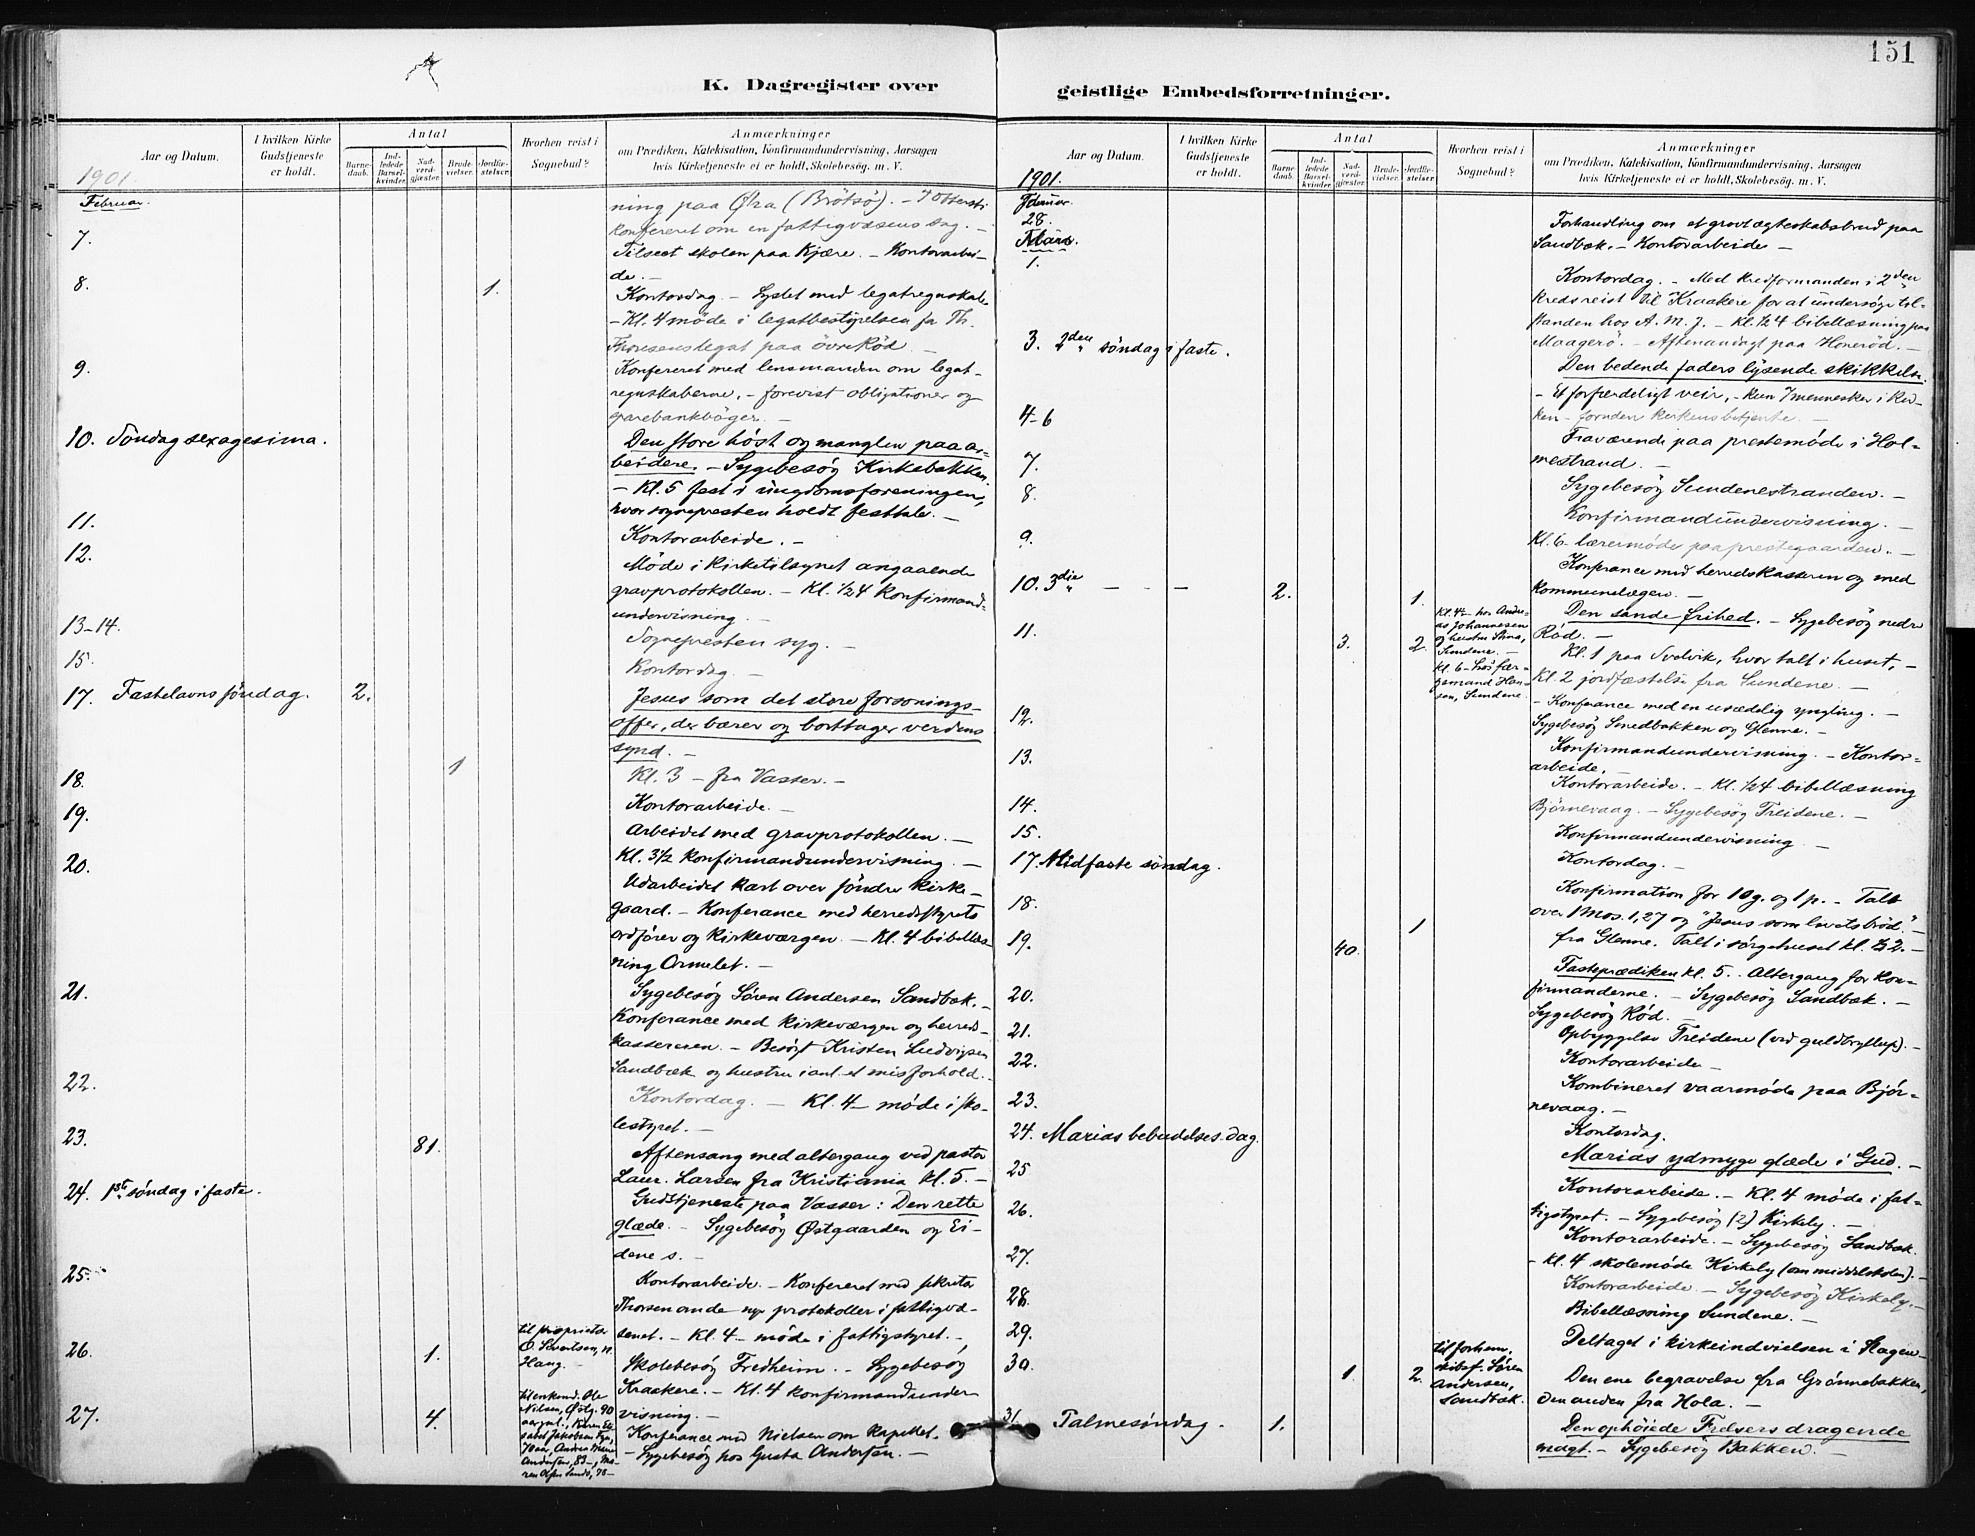 151
K. Dagregister over
geistlige Embedsforretninger.
Aar og Datum.
I hvilken Kirke
Gudstjeneste
er holdt.
Antal
Barne-
daab.
Ind-
ledede
Barsel-
kvinder.
Nad-
verd-
gjæster.
Brude-
vielser.
Jordfæ-
stelser.
Hvorhen reist i
Sognebud?
Anmærkninger
om Prædiken, Katekisation, Konfirmandundervisning, Aarsagen
hvis Kirketjeneste ei er holdt, Skolebesøg. m. V.
1901.
Februar.
ning paa Øra (Brötsø). –
konfereret om en fattigvæsenssag. –
7.
Tilseet skolen paa Kjære. – Kontorarbei-
de. –
8.
1.
Kontordag – Syslet med legatregnskab.
– Kl. 4 møde i legatbestyrelsen for Th.
Thoresens legat paa övre Rød –
9.
Konfereret med lensmanden om legat-
regnskaberne. – forevist obligationer og
sparebankbøger. –
10. Søndag sexagesima.
Den store høst og manglen paa ar-
beidere. – Sygebesøg Kirkebakken.
– Kl. 5 fest i ungdomsforeningen,
hvor sognepresten holdt festtale. –
11.
Kontorarbeide. –
12.
Møde i Kirketilsynet angaaende
gravprotokollen. – Kl. 1/2 4 konfirmand-
undervisning. –
13–14.
Sognepresten syg. –
15.
Kontordag. –
17. Fastelavns søndag. 2.
Jesus som det store forsonings-
offer, der bærer og borttager verdens
synd. –
18.
1
Kl. 3 – fra Vasser. –
Kontorarbeide. –
19.
Arbeidet med gravprotokollen. –
Kl. 3 1/2 konfirmandundervisning. –
20.
Udarbeidet kart over søndre kirke-
gaard. – Konferance med herredsstyrets
ordfører og kirkeværgen. – Kl. 4 bibellæs-
ning Ormelet. –
21.
Sygebesøg Søren Andersen Sandbæk. –
Konferance med kirkeværgen og herreds-
kassereren. – Besøgt Kristen Ludvigsen
Sandbæk og hustru i anl. et misforhold. –
22.
Kontordag. – Kl. 4 – møde i sko-
lestyret. –
23.
81.
Aftensang med altergang ved pastor
Laur. Larsen fra Kristiania kl. 5. –
24. 1ste søndag i faste.
Gudstjeneste paa Vasser: Den rette
glæde. – Sygebesøg Østgaarden og Ei-
dene s. –
25.
Kontorarbeide – Konfereret med sekretær
Thorsen om de nye protokoller i fattigvæ-
senet. – Kl. 4 – møde i fattigstyret. –
26.
1.
til proprietær
O. Sivertsen, n.
Haug.
Skolebesøg Fredheim. – Sygebesøg
Kraakere. – Kl. 4 konfirmandunder-
visning. –
27.
4.
til enkemd. Ole
Nilsen, Østg. 90
Konferance med Nielsen om kapellet.
– Sygebesøg hos Gusta Andersen. –
Aar og Datum.
I hvilken Kirke
Gudstjeneste
er holdt.
Antal
Barne-
daab.
Ind-
ledede
Barsel-
kvinder.
Nad-
verd-
gjæster.
Brude-
vielser.
Jordfæ-
stelser.
Hvorhen reist i
Sognebud?
Anmærkninger
om Prædiken, Katekisation, Konfirmandundervisning, Aarsagen
hvis Kirketjeneste ei er holdt, Skolebesøg. m. V.
1901.
28.
Forhandling om et grovt ægteskabsbrud paa
Sandbæk. – Kontorarbeide –
Märs.
1.
Kontordag. – Med kredsformanden i 2den
kreds reist til Kraakere for at undersøge til-
standen hos A. M. J. – Kl. 1/2 4 bibellæsning paa
Maagerø. – Aftenandagt paa Honerød. –
3. 2den søndag i faste.
Den bedende faders lysende skikkelse.
– Et forfærdeligt veir, – kun 7 mennesker i kir-
ken – foruden kirkens betjente. –
4–6
Fraværende paa prestemøde i Hol-
mestrand. –
7.
Sygebesøg Sundenestranden. –
8.
Konfirmandundervisning. –
Kl. 6 – lærermøde paa prestegaarden. –
9.
Konferance med herredskasseren og med
kommunelægen. –
10. 3die „ – – –
2.
1.
Den sande frihed. – Sygebesøg nedre
Rød. –
11.
3.
2.
Kl. 4 – hos Andre-
as Johannesen
og hustru Stina,
Sundene. –
Kl. 6 – hos fær-
gemand Han-
sen, Sundene.
Kl. 1 paa Svelvik, hvor talt i huset, –
Kl. 2 jordfæstelse fra Sundene. –
– Konferance med en usædelig yngling. –
12.
Sygebesøg Smedbakken og Glenne. –
Konfirmandundervisning. – Kontor-
arbeide. –
13.
Kontorarbeide. – Kl. 1/2 4 bibellæsning
Bjørnevaag. – Sygebesøg Treidene. –
14.
Konfirmandundervisning –
15.
Kontordag. –
17. Midfaste søndag.
Konfirmation for 10 g. og 1 p. – Talt
over 1 Mos. 1, 27 og "Jesus som livets brød." –
18.
1
fra Glenne. Talt i sørgehuset kl. 1/2 2. –
19.
40.
Fasteprædiken kl. 5. Altergang for kon-
firmanderne. – Sygebesøg Sandbæk. –
20.
Sygebesøg Rød. –
21.
Opbyggelse Treidene (ved guldbryllup). –
22.
Kontorarbeide –
Kombineret vaarmøde paa Bjør-
nevaag. –
23.
Kontordag.
24. Marias bebudelses dag.
Marias ydmyge glæde i Gud. –
25
Kontorarbeide. – Kl. 4 møde i fat-
tigstyret. – Sygebesøg (2) Kirkely. –
26.
Kontorarbeide. – Sygebesøg Sandbæk.
– Kl. 4 skolemøde Kirkely (om middelskolen). –
27.
Kontorarbeide – Sygebesøg Kirkely. –
28.
Bibellæsning Sundene. –
29.
Deltaget i kirkeindvielsen i Slagen –
30.
1
2.
til forhenv.
skibsf. Søren
Andersen,
Sandbæk.
Den ene begravelse fra Grønnebakken,
den anden fra Hola. –
31 Palmesøndag. 1.
Den ophøiede Frelsers dragende
magt. – Sygebesøg Bakken. –